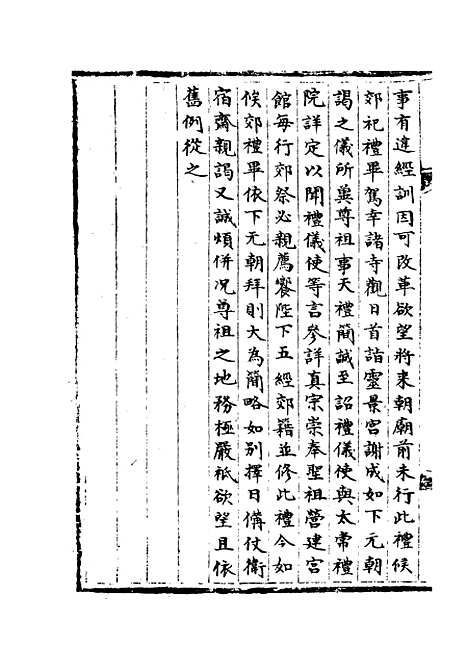 事有違經訓因可改革欲望將來朝廟前未行此禮俟
郊祀禮畢駕幸諸寺觀日首詣靈景宮謝成如下元朝
謁之儀所冀尊祖事天禮簡誠至詔禮儀使與太常禮
院詳定以聞禮儀使等言參詳真宗崇奉聖祖營建宮
館每行郊祭必親薦饗陛下五經郊籍並修此禮今如
俟郊禮畢依下元朝拜則大為簡略如別擇日備仗衛
宿齋親謁又誠煩併况尊祖之地務極嚴祗欲望且依
舊例從之